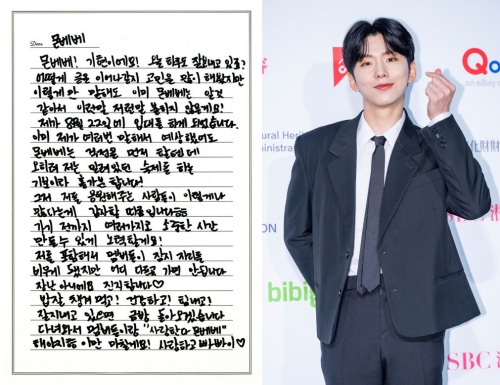 Dear. 몬베베
몬베베! 기현이에요! 오늘 하루도 잘보내고 있죠?
어떻게 글로 이어나갈지 고민을 많이 해봤지만
이렇게 안 말해도 이미 몬베베는 알것
같아서 이런말 저런말 붙이지 않을게요!
제가 8월 22일에 입대를 하게 되었습니다.
이미 제가 여러번 말해서 예상했어도
몬베베는 걱정을 먼저 할텐데
오히려 저는 밀려있던 숙제를 하는
기분이라 홀가분 합니다!
그저 저를 응원해주는 사람들이 이렇게나
많다는게 감사할 따름입니다
가기 전까지 여러가지로 소중한 시간
만들수 있게 노력할게요!
저를 포함해서 멤버들이 잠시 자리를
비우게 됐지만 어디 다른데 가면 안됩니다
장난 아니에요 진지합니다♡
밥잘 챙겨 먹고! 건강하고! 힘내고!
잘지내고 있으면 금방 돌아오겠습니다
다녀와서 멤버들이랑 "사랑한다 몬베베"
태야지 이만 마칠게요! 사랑하고 빠빠이♡
Qo
an eBay
ural Herit
dministrati
化財
ON
bibig
SBC